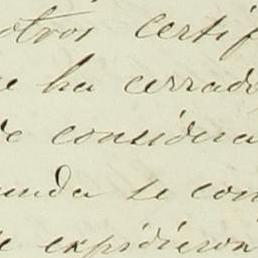 otros certif
e ha cerrado
de considera
unda se con
se expidieron